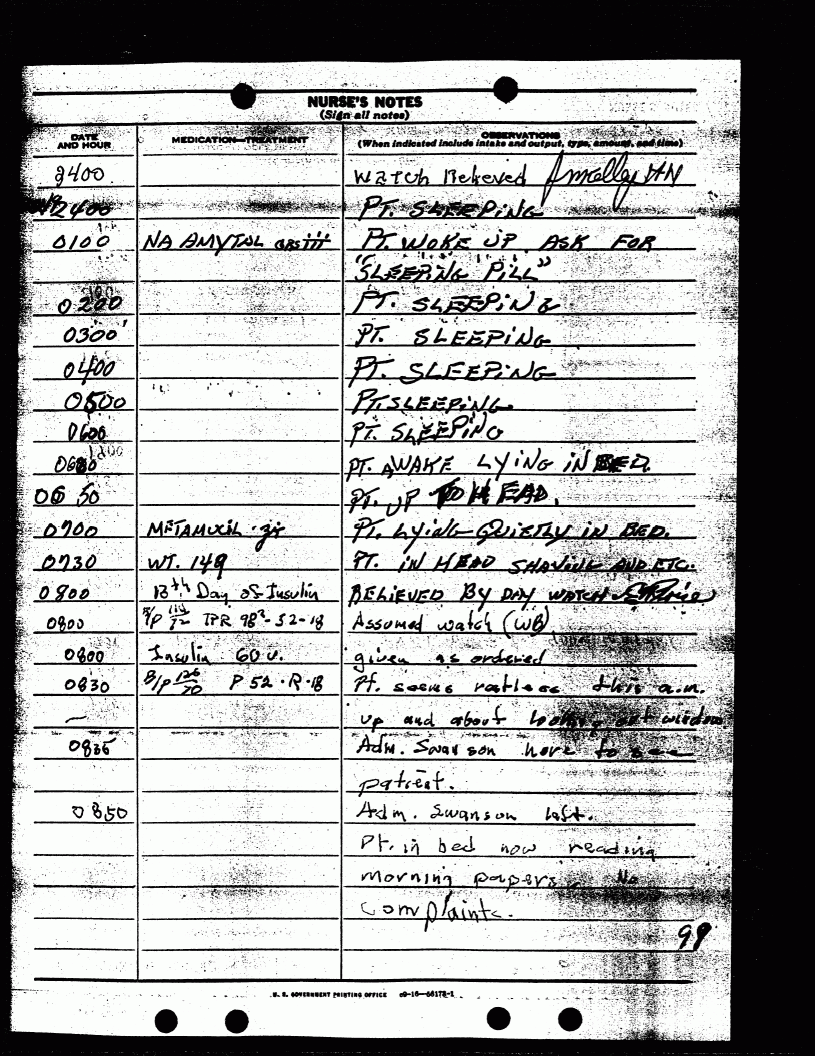 NURSE'S NOTES
(Sign all notes)
DATE AND HOUR MEDICATION—TREATMENT OBSERVATIONS
(When indicated include intake and output, type, amount, and time)
2400 Watch Relieved HN
2400 PT. SLEEPING
0100 NA AMYTAL grs iii PT. WOKE UP ASK FOR
"SLEEPING PILL"
0200 PT. SLEEPING
0300 PT. SLEEPING
0400 PT. SLEEPING
0500 PT. SLEEPING
0600 PT. SLEEPING
PT. AWAKE LYING IN BED.
PT. UP TO HEAD.
0700 METAMUCIL PT. LYING QUIETLY IN BED.
0730 WT. 149 PT. IN HEAD SHAVING AND ETC.
0800 13th Day of Insulin RELIEVED BY DAY WATCH
0800 B/P TPR 98²-52-18 Assumed watch (WB)
0800 Insulin 60 u. given as ordered
0830 B/P 126/70 P 52 · R · 18 Pt. seems restless this a.m.
up and about looking out window
0835 Adm. Swanson here to see
patient.
0850 Adm. Swanson left.
Pt. in bed now reading
morning papers. No
complaints.
99
U. S. GOVERNMENT PRINTING OFFICE c9-16—66178-1